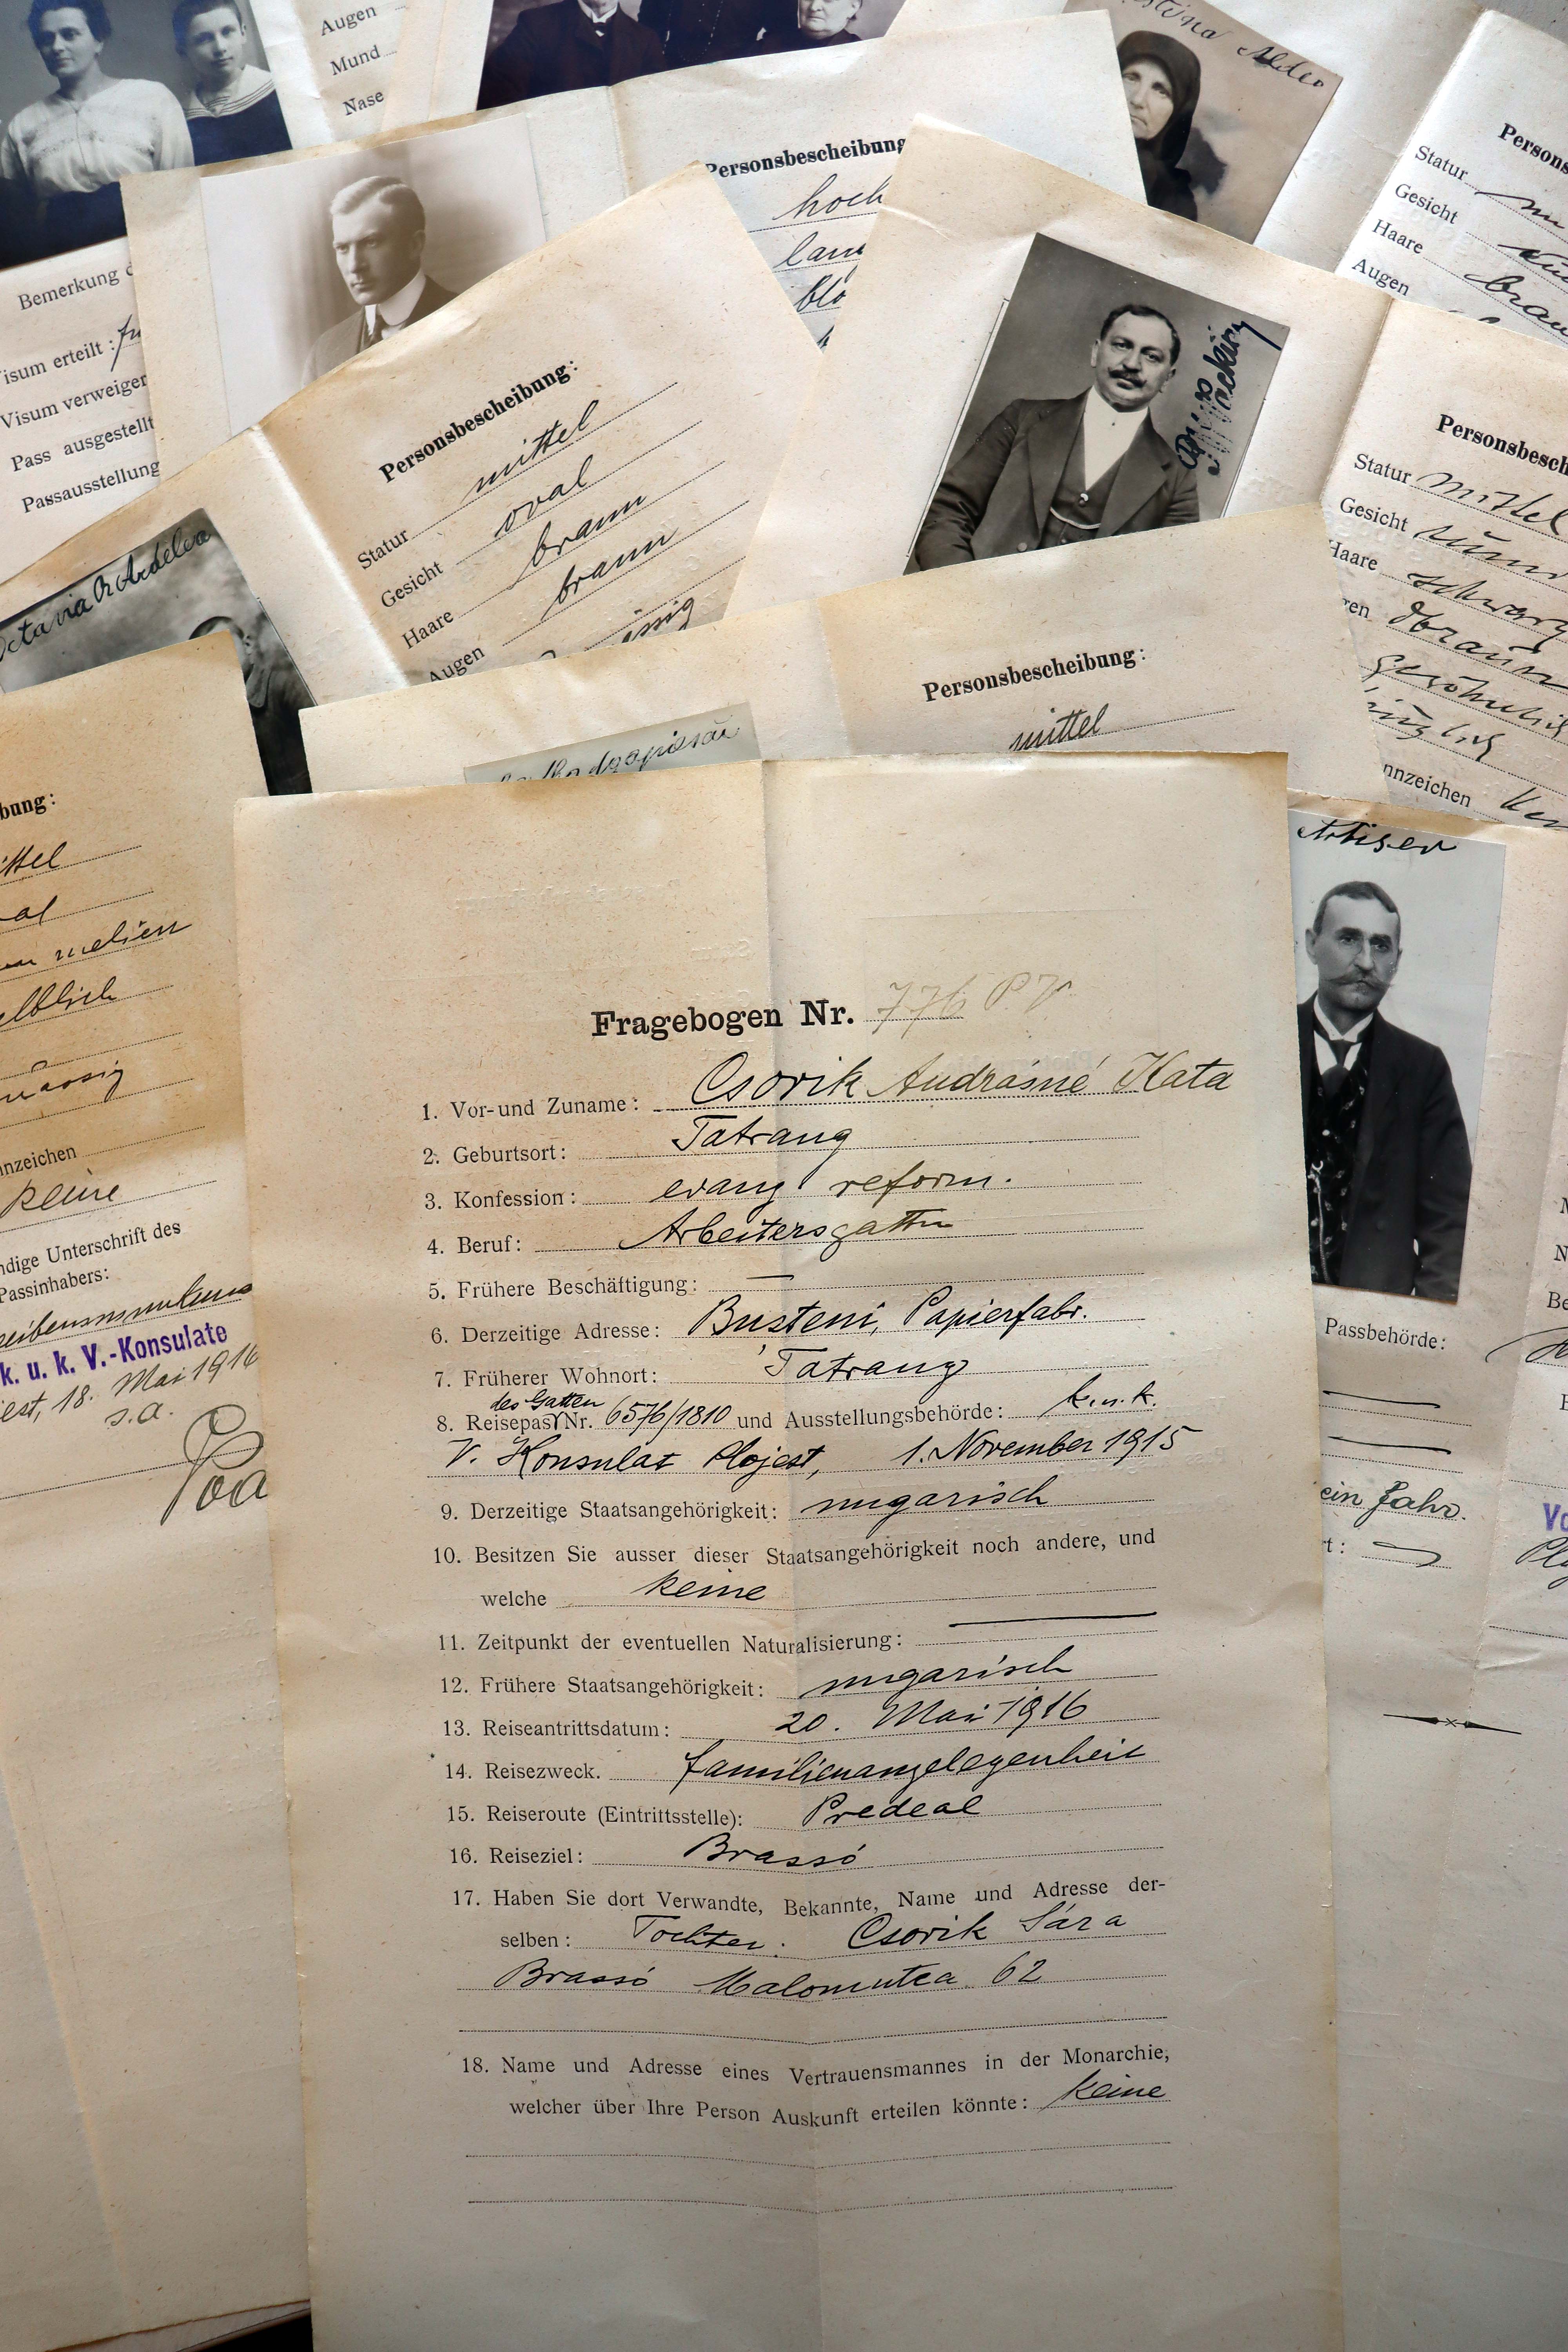 Augen
Mund
Nase
Bemerkung
Visum erteilt :
Visum verweiger
Pass ausgestellt
Passausstellung
Personsbescheibung
hoch
Personsbescheibung:
Statur mittel
Gesicht oval
Haare braun
Augen braun
Persons
Statur
Gesicht
Haare
Augen
Personsbesch
Statur mittel
Gesicht
Haare schwarz
braun
nnzeichen
Personsbescheibung:
mittel
bung:
nnzeichen
keine
ndige Unterschrift des
Passinhabers:
k. u. k. V.-Konsulate
est, 18. Mai 1916
s.a.
Passbehörde:
ein Jahr.
Fragebogen Nr. 776 P.V
1. Vor-und Zuname: Csorik Andrásné Kata
2. Geburtsort: Tatrang
3. Konfession: evang reform.
4. Beruf: Arbeitersgattin
5. Frühere Beschäftigung: —
6. Derzeitige Adresse: Busteni, Papierfabr.
7. Früherer Wohnort: Tatrang
des Gatten
8. Reisepass Nr. 6576/1810 und Ausstellungsbehörde: k.u.k.
V. Konsulat Plojest, 1. November 1915
9. Derzeitige Staatsangehörigkeit: ungarisch
10. Besitzen Sie ausser dieser Staatsangehörigkeit noch andere, und
welche keine
11. Zeitpunkt der eventuellen Naturalisierung: —
12. Frühere Staatsangehörigkeit: ungarisch
13. Reiseantrittsdatum: 20. Mai 1916
14. Reisezweck. Familienangelegenheit
15. Reiseroute (Eintrittsstelle): Predeal
16. Reiseziel: Brassó
17. Haben Sie dort Verwandte, Bekannte, Name und Adresse der-
selben: Tochter: Csorik Sára
Brassó Malomutca 62
18. Name und Adresse eines Vertrauensmannes in der Monarchie,
welcher über Ihre Person Auskunft erteilen könnte: keine